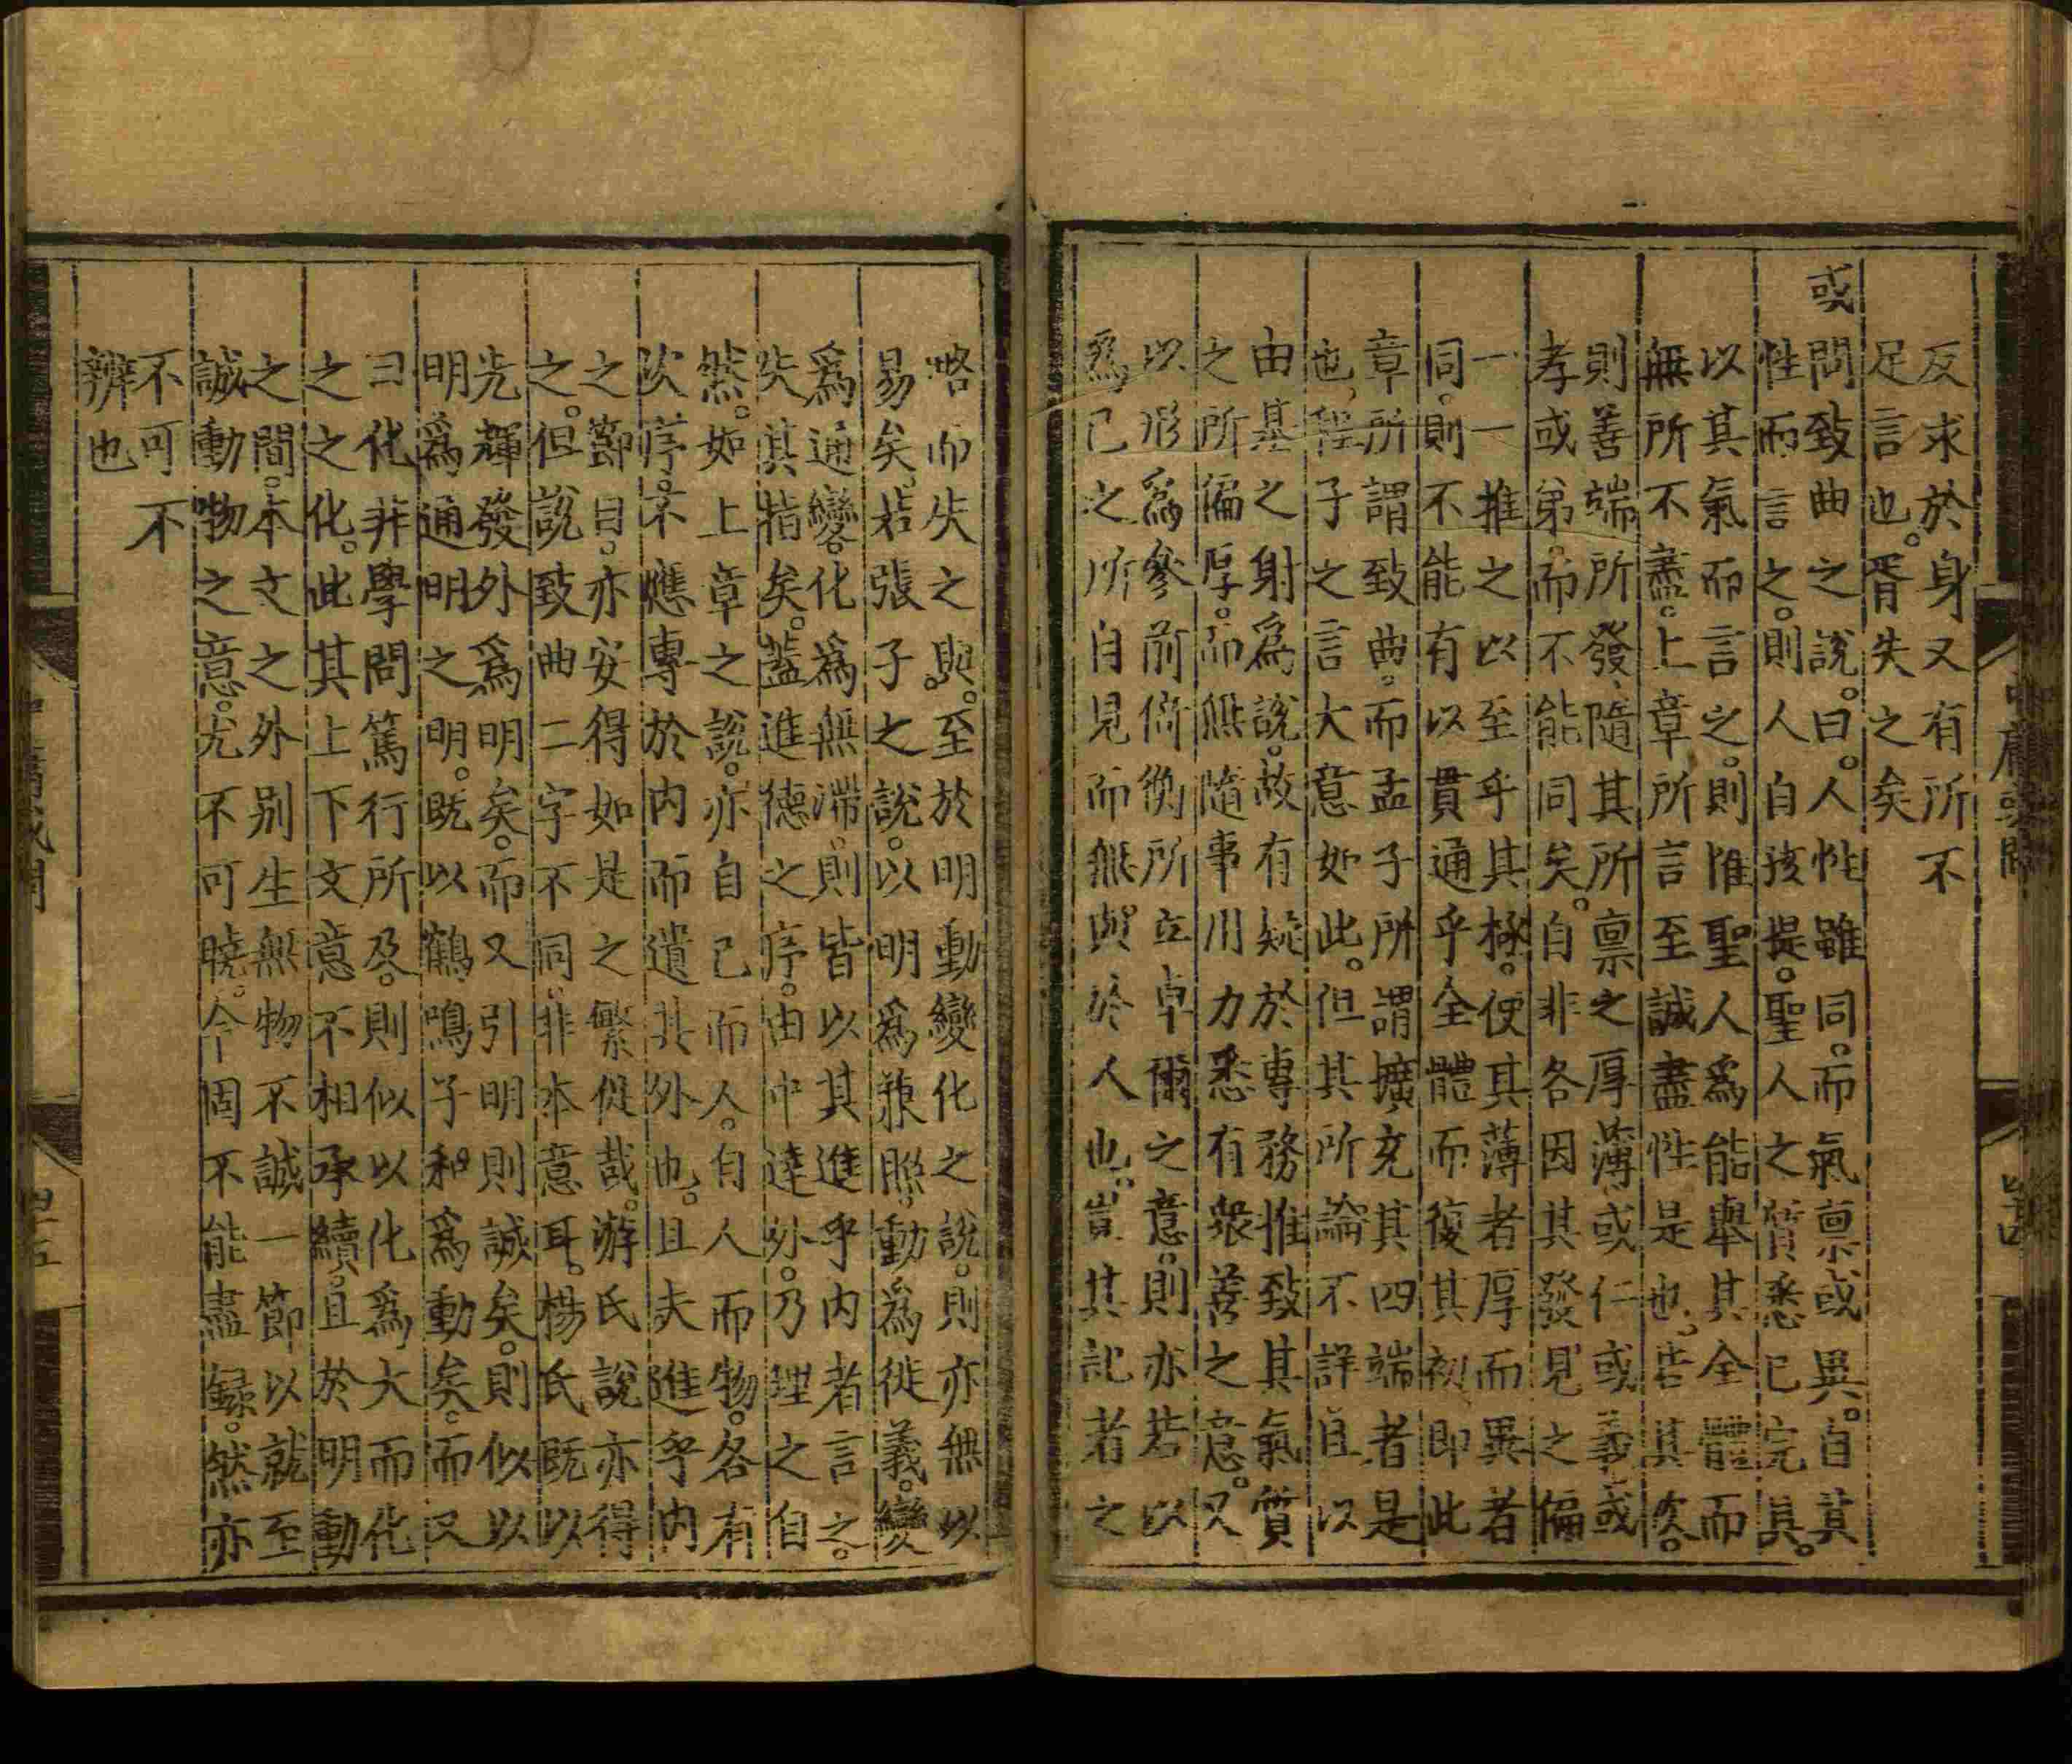 反求於身又有所不
足言也。胥失之矣
或問致曲之說。曰。人性雖同。而氣禀或異。自其
性而言之。則人自孩提。聖人之質悉已完具。
以其氣而言之。則惟聖人爲能舉其全體而
無所不盡。上章所言至誠盡性是也。若其次。
則善端所發隨其所禀之厚薄或仁或義或
孝或弟。而不能同矣。自非各因其發見之偏
一一推之以至乎其極。使其薄者厚而異者
同。則不能有以貫通乎全體而復其初即此
章所謂致曲。而孟子所謂擴充其四端者是
也。程子之言大意如此。但其所論不詳且以
由基之射爲說。故有疑於專務推致其氣質
之所偏厚。而無隨事用力悉有衆善之意。又
以形爲參前倚衡所立卓爾之意。則亦若以
爲己之所自見而無與於人也。豈其記者之
略而失之與。至於明動變化之說。則亦無以
易矣。若張子之說。以明爲兼照。動爲徙義。變
爲通變。化爲無滯。則皆以其進乎內者言之。
失其指矣。蓋進德之序。由中達外。乃理之自
然。如上章之說。亦自己而人。自人而物。各有
次序。不應專於內而遺其外也。且夫進乎內
之節目。亦安得如是之繁促哉。游氏說亦得
之。但說致曲二字不同。非本意耳。楊氏既以
光輝發外爲明矣。而又引明則誠矣。則似以
明爲通明之明。既以鶴鳴子和爲動矣。而又
曰化非學問篤行所及。則似以化爲大而化
之之化。此其上下文意不相承續。且於明動
之間。本文之外別生無物不誠一節以就至
誠動物之意。尤不可曉。今固不能盡録。然亦
不可不
辨也